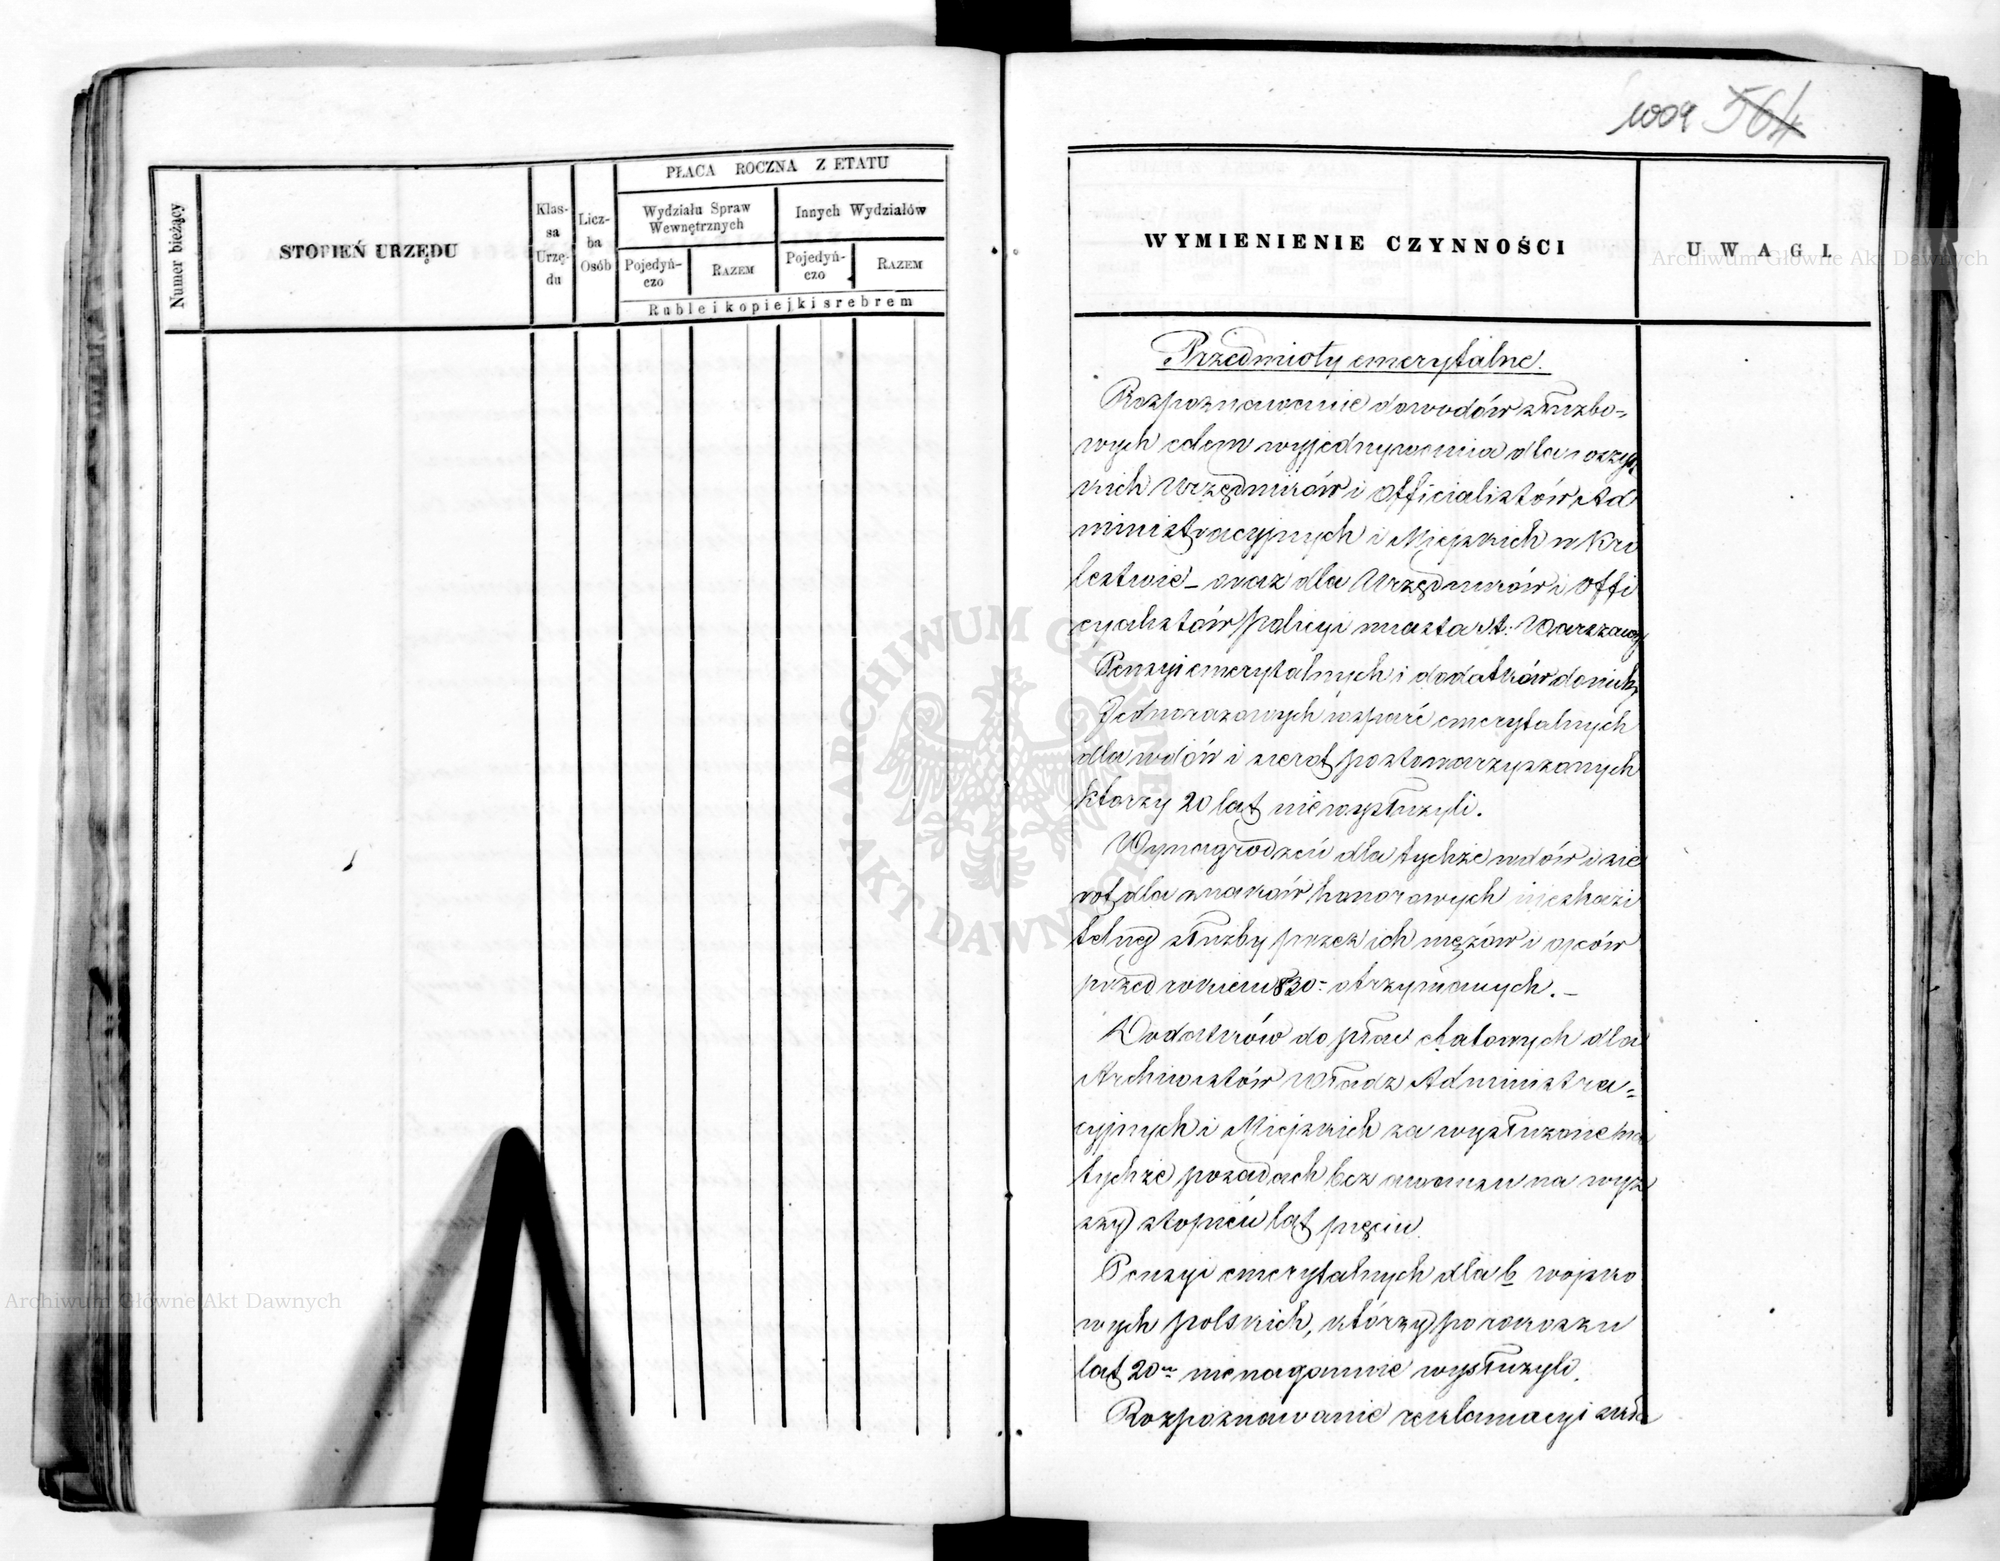 Numer bieżący
STOPIEŃ URZĘDU
Klas-
sa
Urzę-
du
Licz-
ba
Osób
PŁACA ROCZNA Z ETATU
Wydziału Spraw
Wewnętrznych
Innych Wydziałów
Pojedyń-
czo
RAZEM
Pojedyń-
czo
RAZEM
Ruble i kopiejki srebrem
1009 564
WYMIENIENIE CZYNNOŚCI
UWAGI
Przedmioty emerytalne.
Rozpoznawanie dowodów służbo=
wych celem wyjednywania dla wszyst
kich Urzędników i Officialistów Ad
ministracyjnych i Miejskich w Kró
lestwie – oraz dla Urzędników i Offi
cyalistów Policyi miasta St: Warszawy
Pensyi emerytalnych i dodatków do nich,
Jednorazowych wsparć emerytalnych
dla wdów i sierot po stowarzyszonych
którzy 20 lat nie wysłużyli.
Wynagrodzeń dla tychże wdów i sie
rot dla znaków honorowych nieskazi
telnej służby przez ich mężów i ojców
przed rokiem 830 otrzymanych. –
Dodatków do płac etatowych dla
Archiwistów Władz Administra=
cyjnych i Miejskich za wysłużone na
tychże posadach bez awansu na wyż
szy stopień lat pięciu.
Pensyi emerytalnych dla b wojsko
wych polskich, którzy po rokoszu
lat 20 nienagannie wysłużyli.
Rozpoznawanie reklamacyi
ARCHIWUM GŁÓWNE AKT DAWNYCH
Archiwum Główne Akt Dawnych
Archiwum Główne Akt Dawnych